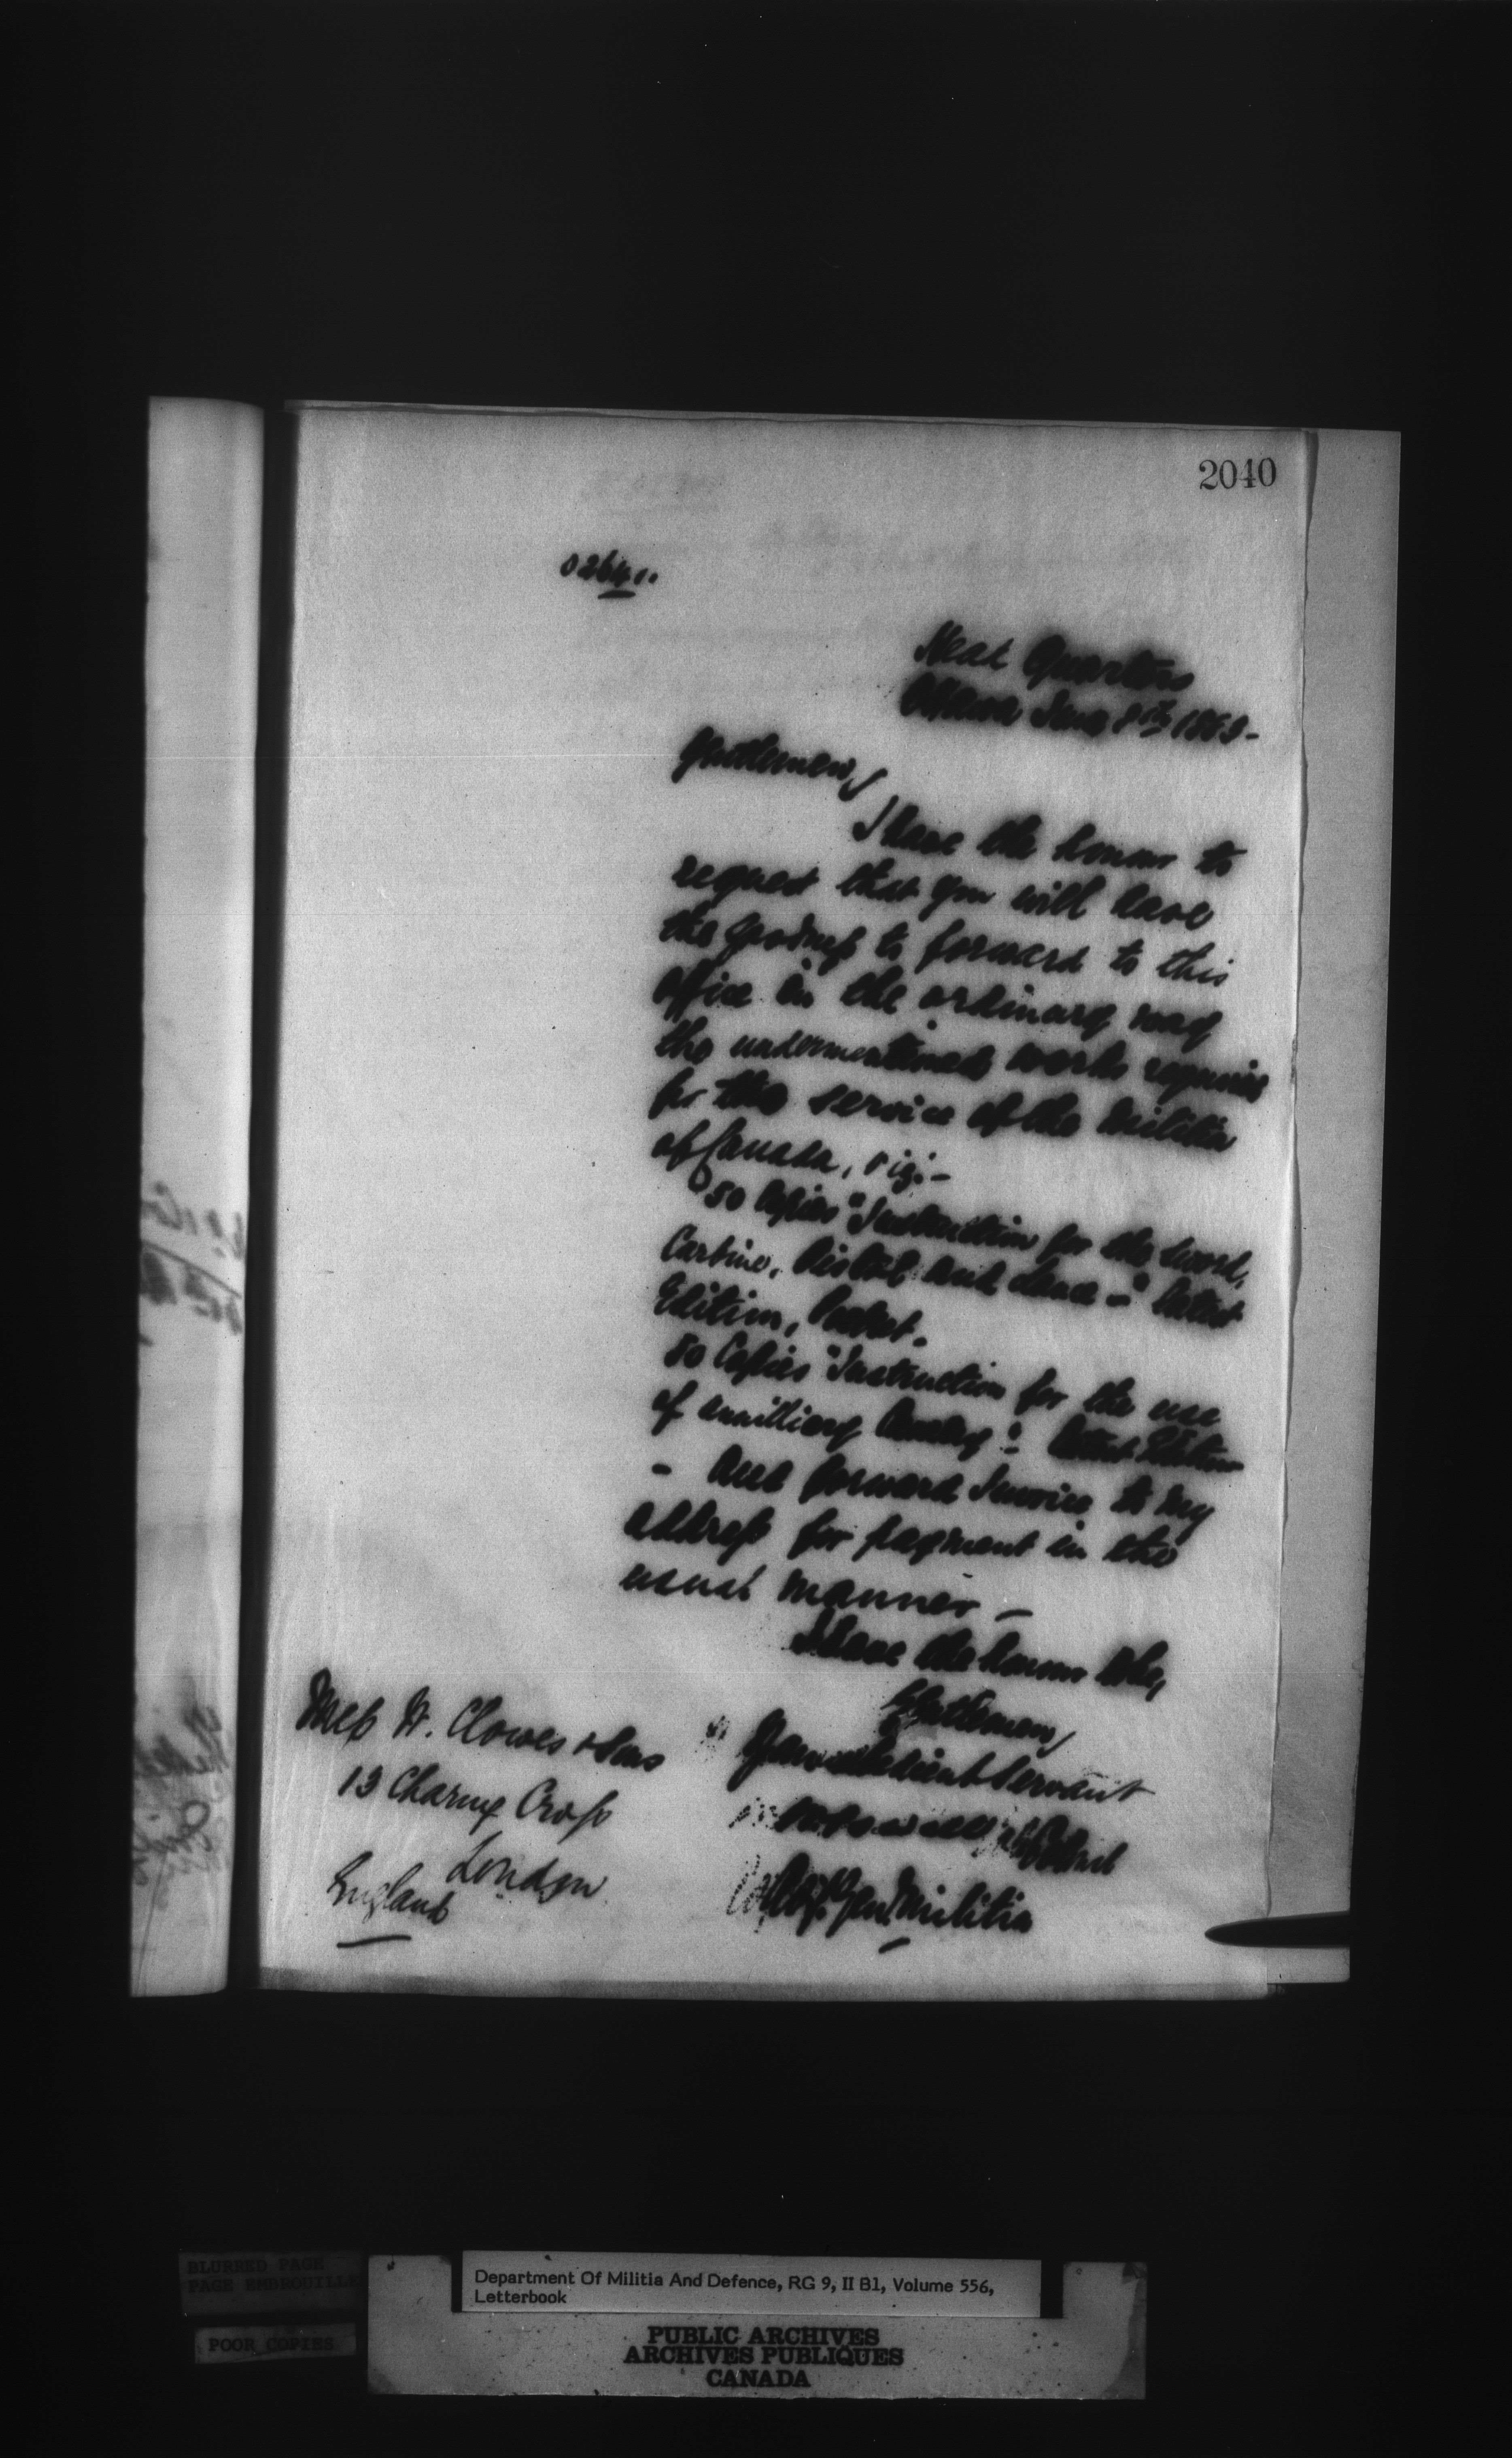 2040
0264
Head Quarters
Ottawa June 8th 1869-
Gentlemen,
I have the honor to
request that you will have
the goodness to forward to this
office in the ordinary way
the undermentioned works required
for the service of the Militia
of Canada, viz:-
50 Copies "Instruction for the Sword,
Carbine, Pistol and Lance -" latest
Edition, Pocket.
50 Copies "Instruction for the use
of auxilliary Cavalry" latest Edition
- And forward Invoice to my
address for payment in the
usual manner -
I have the honor to be,
Gentlemen,
Your obedient Servant
Colonel
Adj. Gen. Militia
Mess W. Clowes & Sons
13 Charing Cross
London
England
BLURRED PAGE
PAGE EMBROUILLEE
POOR COPIES
Department Of Militia And Defence, RG 9, II B1, Volume 556,
Letterbook
PUBLIC ARCHIVES
ARCHIVES PUBLIQUES
CANADA